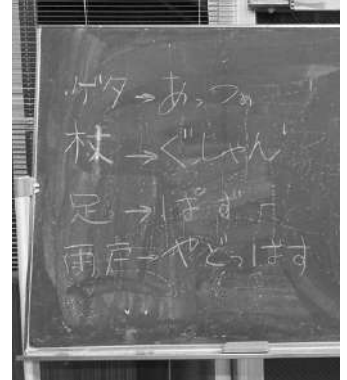 ゲタ→あっつぁ
杖→ぐしゃん
足→ぱず
雨戸→やどっぱす